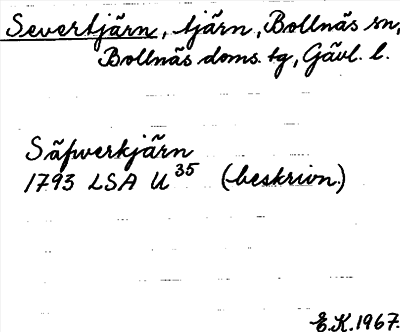 Severtjärn, tjärn, Bollnäs sn,
Bollnäs doms. tg, Gävl. l.
Säfwerkjärn
1793 LSA U³⁵ (beskrivn.)
E.K. 1967.